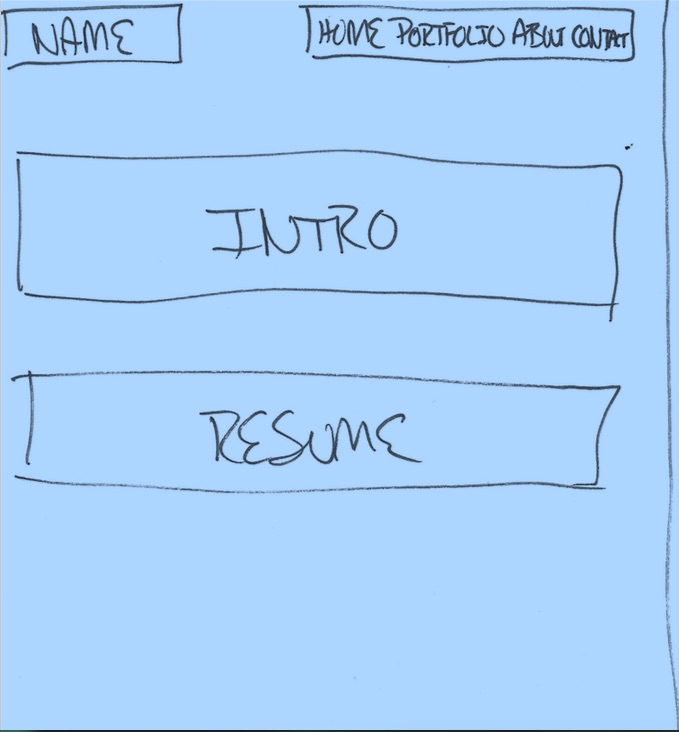 NAME
HOME PORTFOLIO ABOUT CONTACT
INTRO
RESUME